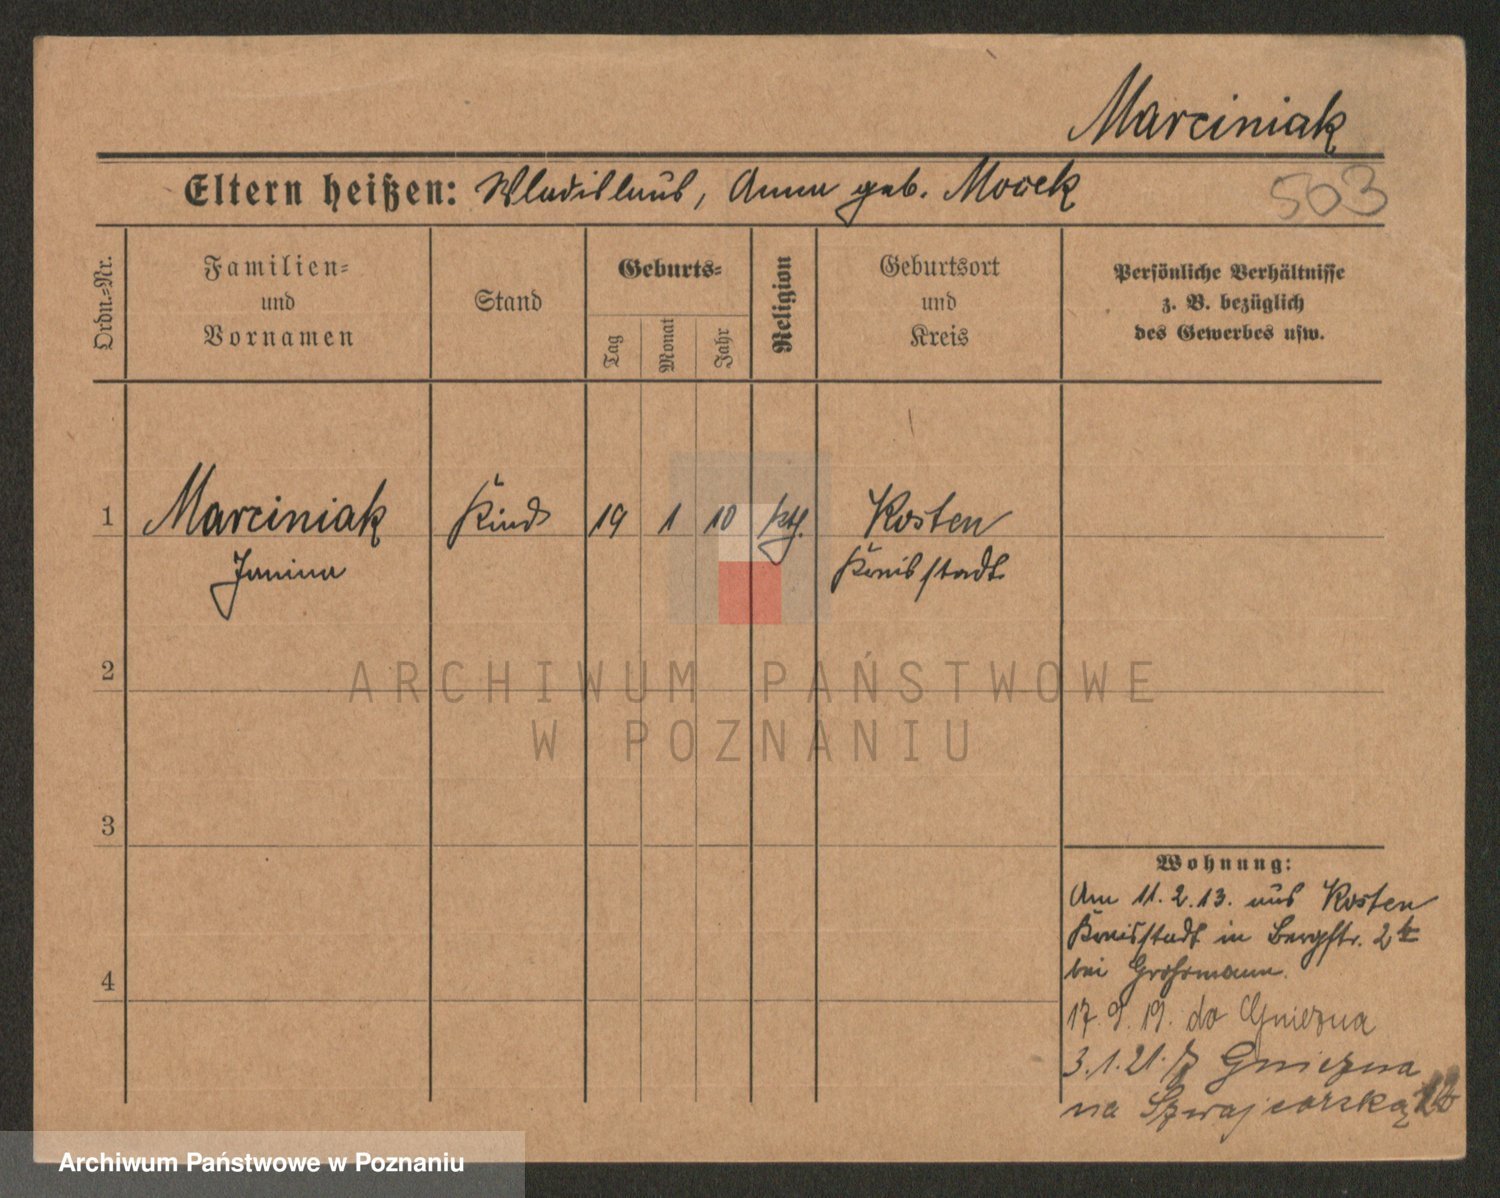 Marciniak
Eltern heißen: Wladislaus, Anna geb. Mocek
503
Ordn.-Nr.
Familien-
und
Vornamen
Stand
Geburts-
Tag
Monat
Jahr
Religion
Geburtsort
und
Kreis
Persönliche Verhältnisse
z. B. bezüglich
des Gewerbes usw.
1 Marciniak Kind 19 1 10 kth. Kosten
Janina Kreisstadt
2
ARCHIWUM PAŃSTWOWE
W POZNANIU
3
Wohnung:
Am 11.2.13. aus Kosten
Kreisstadt in Bergstr. 2
bei Grossmann.
4
17.9.19. do Gniezna
3.1.21. z Gniezna
na Szwajcarską
Archiwum Państwowe w Poznaniu